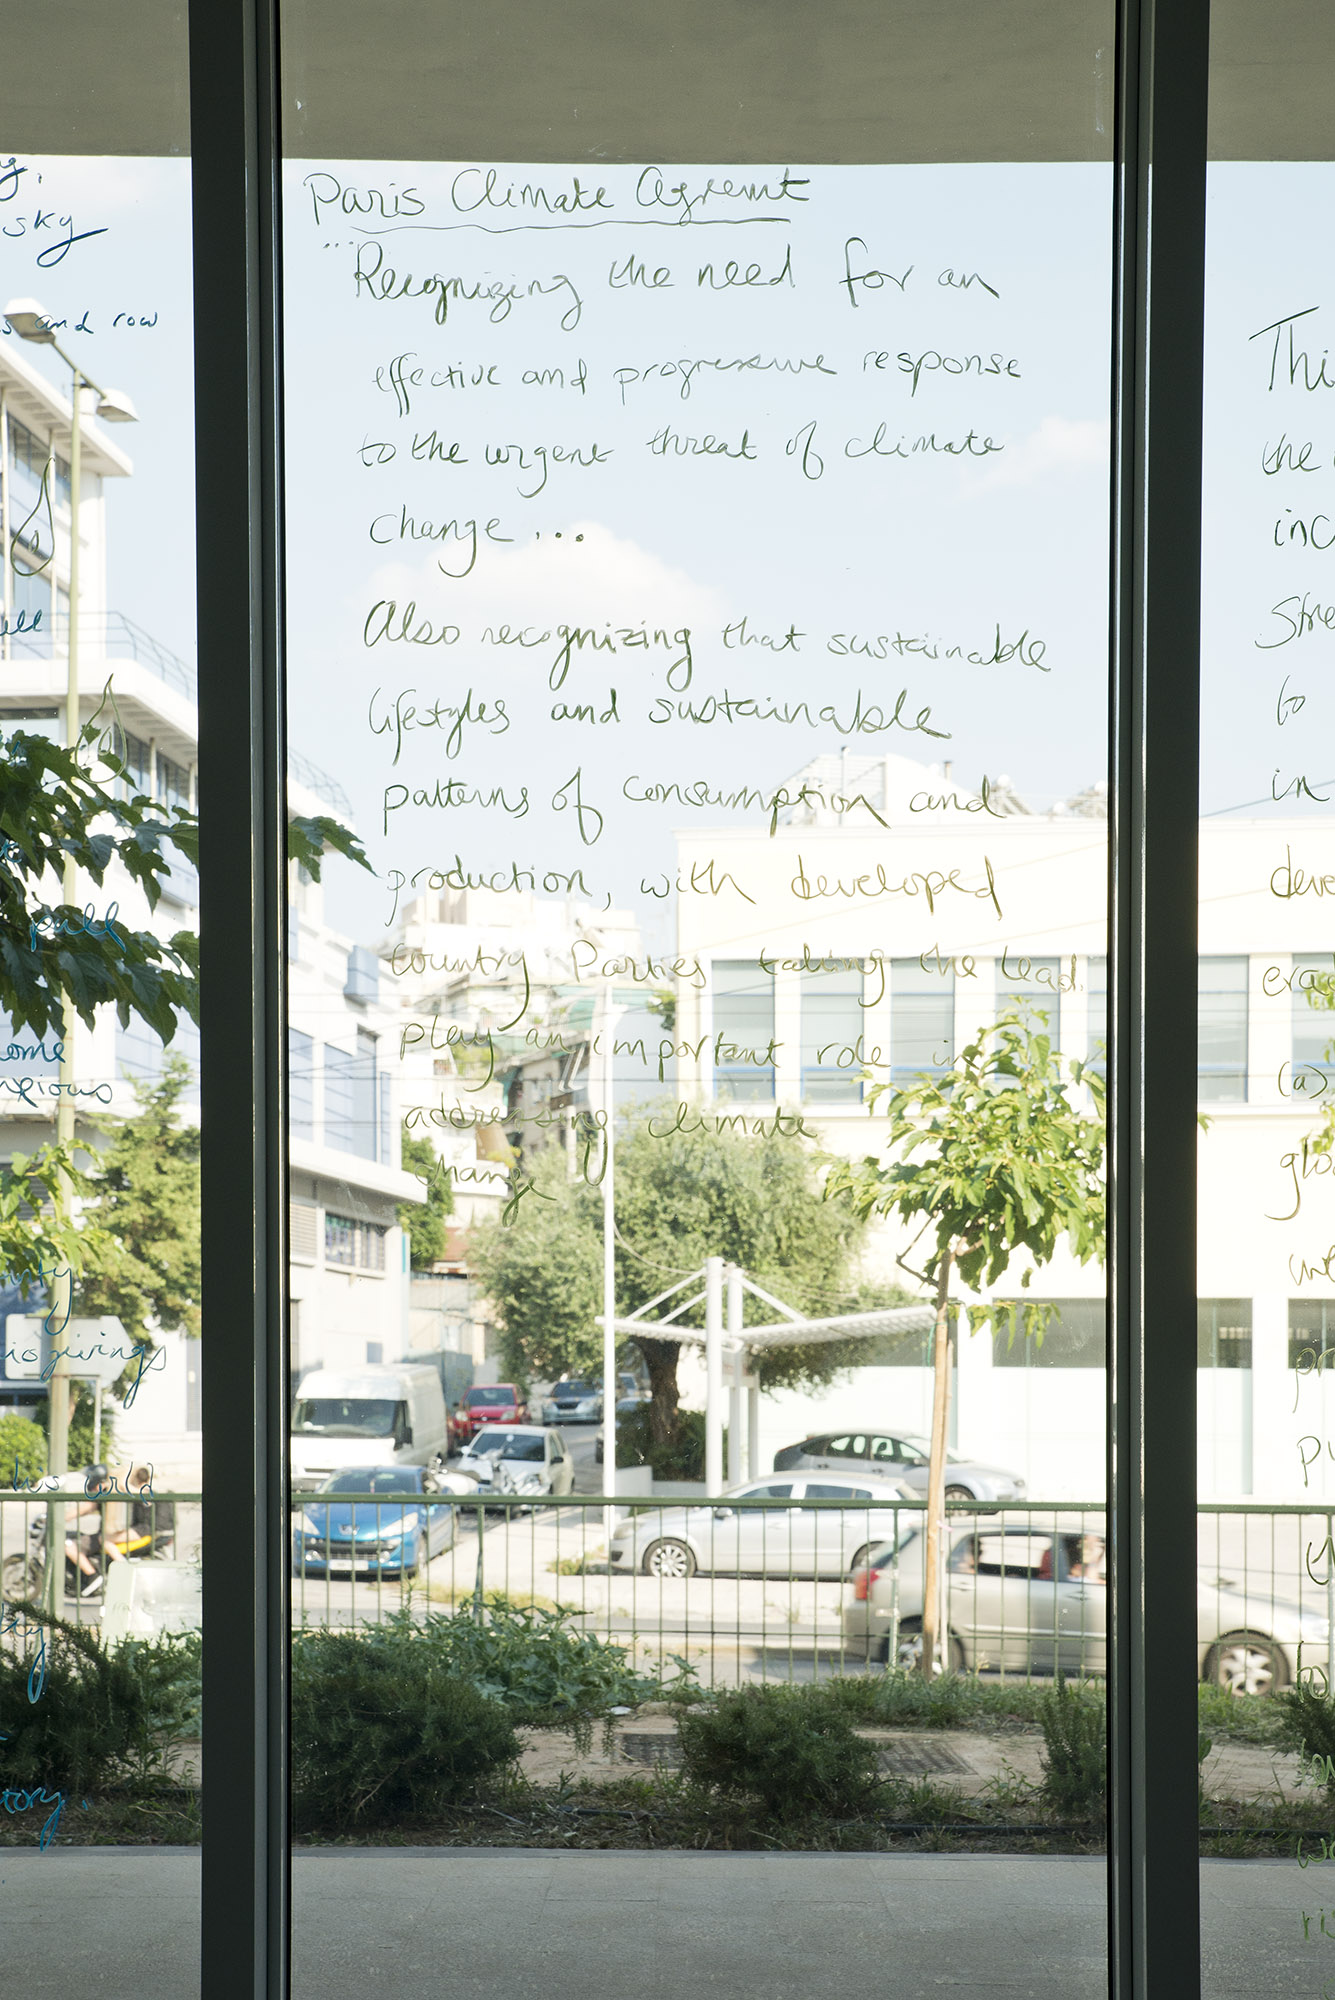 sky
and row
pull
misgivings
Paris Climate Agremt
"...Recognizing the need for an
effective and progressive response
to the urgent threat of climate
change...
Also recognizing that sustainable
lifestyles and sustainable
patterns of consumption and
production, with developed
country Parties taking the lead.
play an important role in
addressing climate
change
Thi
the
inc
stre
to
in
deve
erad
(a)
glo